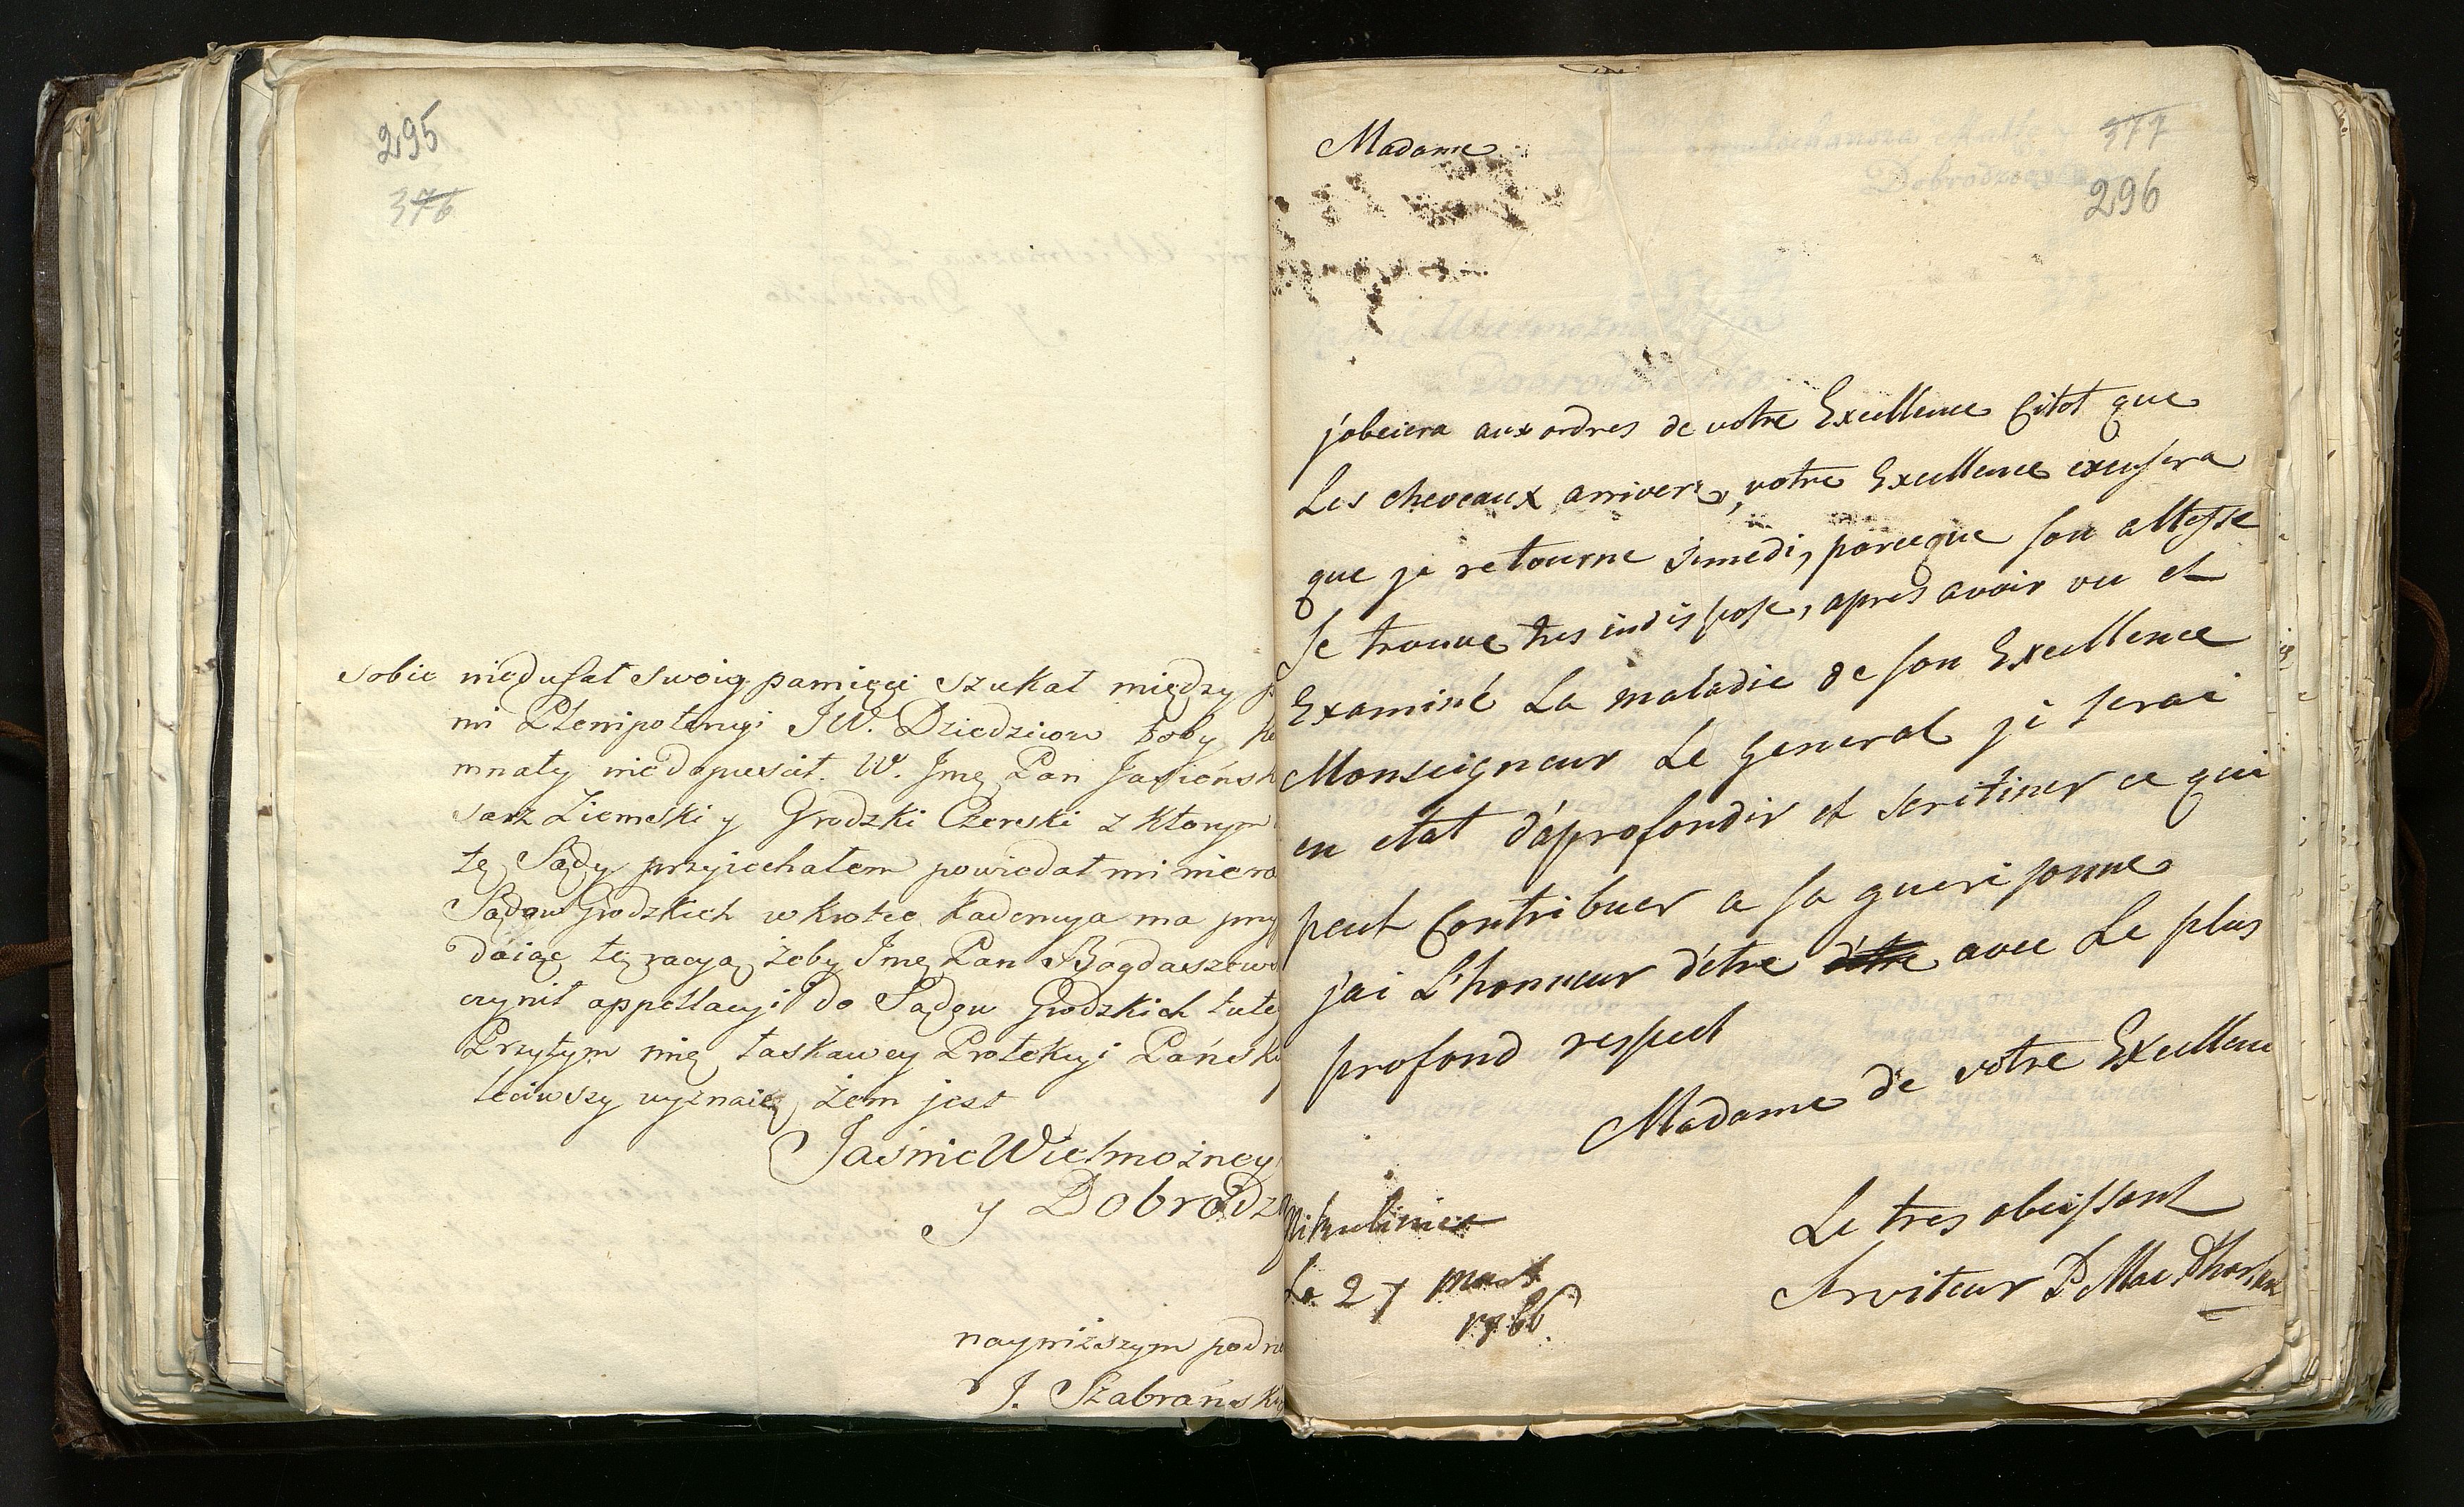 295
376
sobie nieduſał swoią pamięci szukał między
mi Plenipotencyi JW. Dziedzicow żoby
mnały niedopuscił. W. Jmę Pan Jasieńsk
sarz Ziemski y Grodzki Czerski z ktorym
tę Sądy przyiechałem powiedał mi
Sądow Grodzkich wkrotce kademya ma
daiąc tę racyą, żeby Jmę Pan Bogdaszews
czynił appellacyi do Sądow Grodzkich tute
Przytym mię łaskawey Protekcyi Pańsk
leciwszy wyznaię, żem jest
Jaśnie Wielmożney
y Dobrodz
nayniższym podn
J. Szabrański
377
296
Madame
j'obeiera aux ordres de votre Excellence Citot que
Les cheveaux arrivera, votre Excellence excuſera
que je retourne Samedi, parceque ſon alteſse
Se trouve tres indispoſe, apres avoir vu et
Examiné La maladie de ſon Excellence
Monseigneur Le General je serai
en etat d'aprofondir et scritiner ce qui
peut Contribuer a ſa guerisonne
j'ai L'honneur d'etre d'etre avec Le plus
profond respect
Madame de votre Excellenc
Le tres obeiſsant
Serviteur
Mikulinice
Le 27 mars
1766